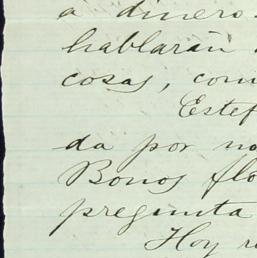 a dinero
hablarán
cosas, com
Estef
da por no
Bonos flo
pregunta
Hoy r